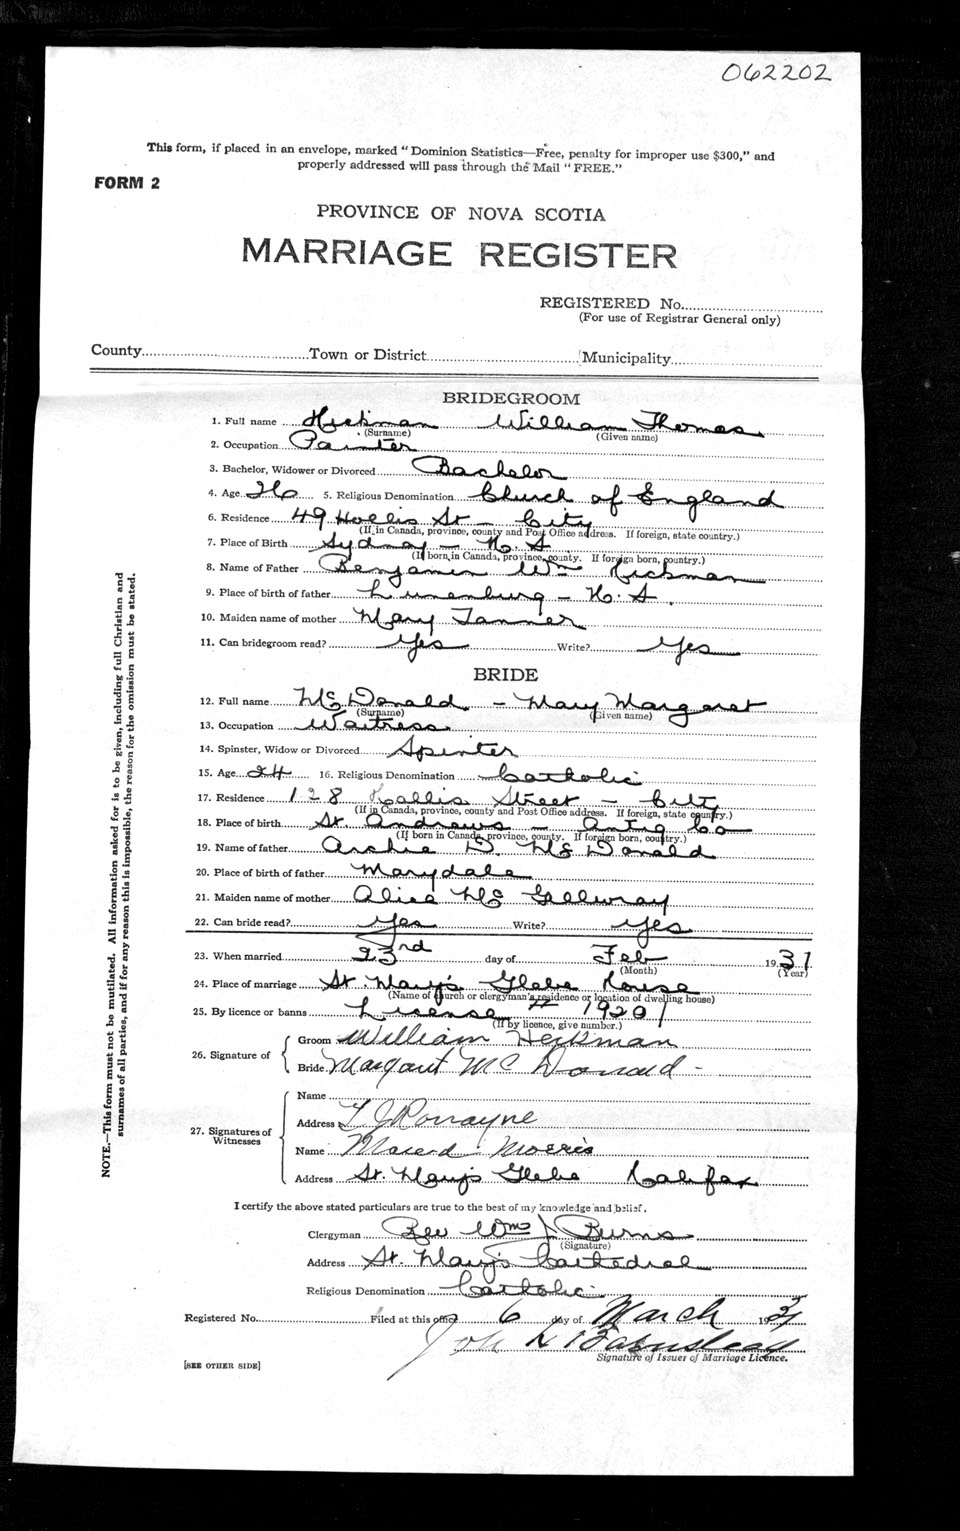 062202
This form, if placed in an envelope, marked "Dominion Statistics—Free, penalty for improper use $300," and
properly addressed will pass through the Mail "FREE."
FORM 2
PROVINCE OF NOVA SCOTIA
MARRIAGE REGISTER
REGISTERED No.
(For use of Registrar General only)
County Town or District Municipality
BRIDEGROOM
1. Full name Hickman William Thomas
(Surname) (Given name)
2. Occupation Painter
3. Bachelor, Widower or Divorced Bachelor
4. Age 26 5. Religious Denomination Church of England
6. Residence 49 Hollis St - City
(If in Canada, province, county and Post Office address. If foreign, state country.)
7. Place of Birth Sydney - N.S
(If born in Canada, province, county. If foreign born, country.)
8. Name of Father Benjamin Wm Hickman
9. Place of birth of father Lunenburg - N.S.
10. Maiden name of mother Mary Tanner
11. Can bridegroom read? Yes Write? Yes
BRIDE
12. Full name McDonald - Mary Margaret
(Surname) (Given name)
13. Occupation Waitress
14. Spinster, Widow or Divorced Spinter
15. Age 24 16. Religious Denomination Catholic
17. Residence 128 Hollis Street - City
(If in Canada, province, county and Post Office address. If foreign, state country.)
18. Place of birth St. Andrews - Antig Co
(If born in Canada, province, county. If foreign born, country.)
19. Name of father Archie D. McDonald
20. Place of birth of father Marydale
21. Maiden name of mother Alice Mc Gillvray
22. Can bride read? Yes Write? Yes
23. When married 23rd day of Feb 1931
(Month) (Year)
24. Place of marriage St. Mary's Glebe House
(Name of church or clergyman's residence or location of dwelling house)
25. By licence or banns License # 19201
(If by licence, give number.)
26. Signature of
Groom William Heckman
Bride Margaret Mc Donald -
27. Signatures of Witnesses
Name
Address
Name Morris
Address St. Mary's Glebe Halifax
I certify the above stated particulars are true to the best of my knowledge and belief.
Clergyman Rev Wm J Burns
(Signature)
Address St. Mary's Cathedral
Religious Denomination Catholic
Registered No. Filed at this office 6 day of March 1931
Signature of Issuer of Marriage Licence.
[SEE OTHER SIDE]
NOTE.—This form must not be mutilated. All information asked for is to be given, including full Christian and
surnames of all parties, and if for any reason this is impossible, the reason for the omission must be stated.